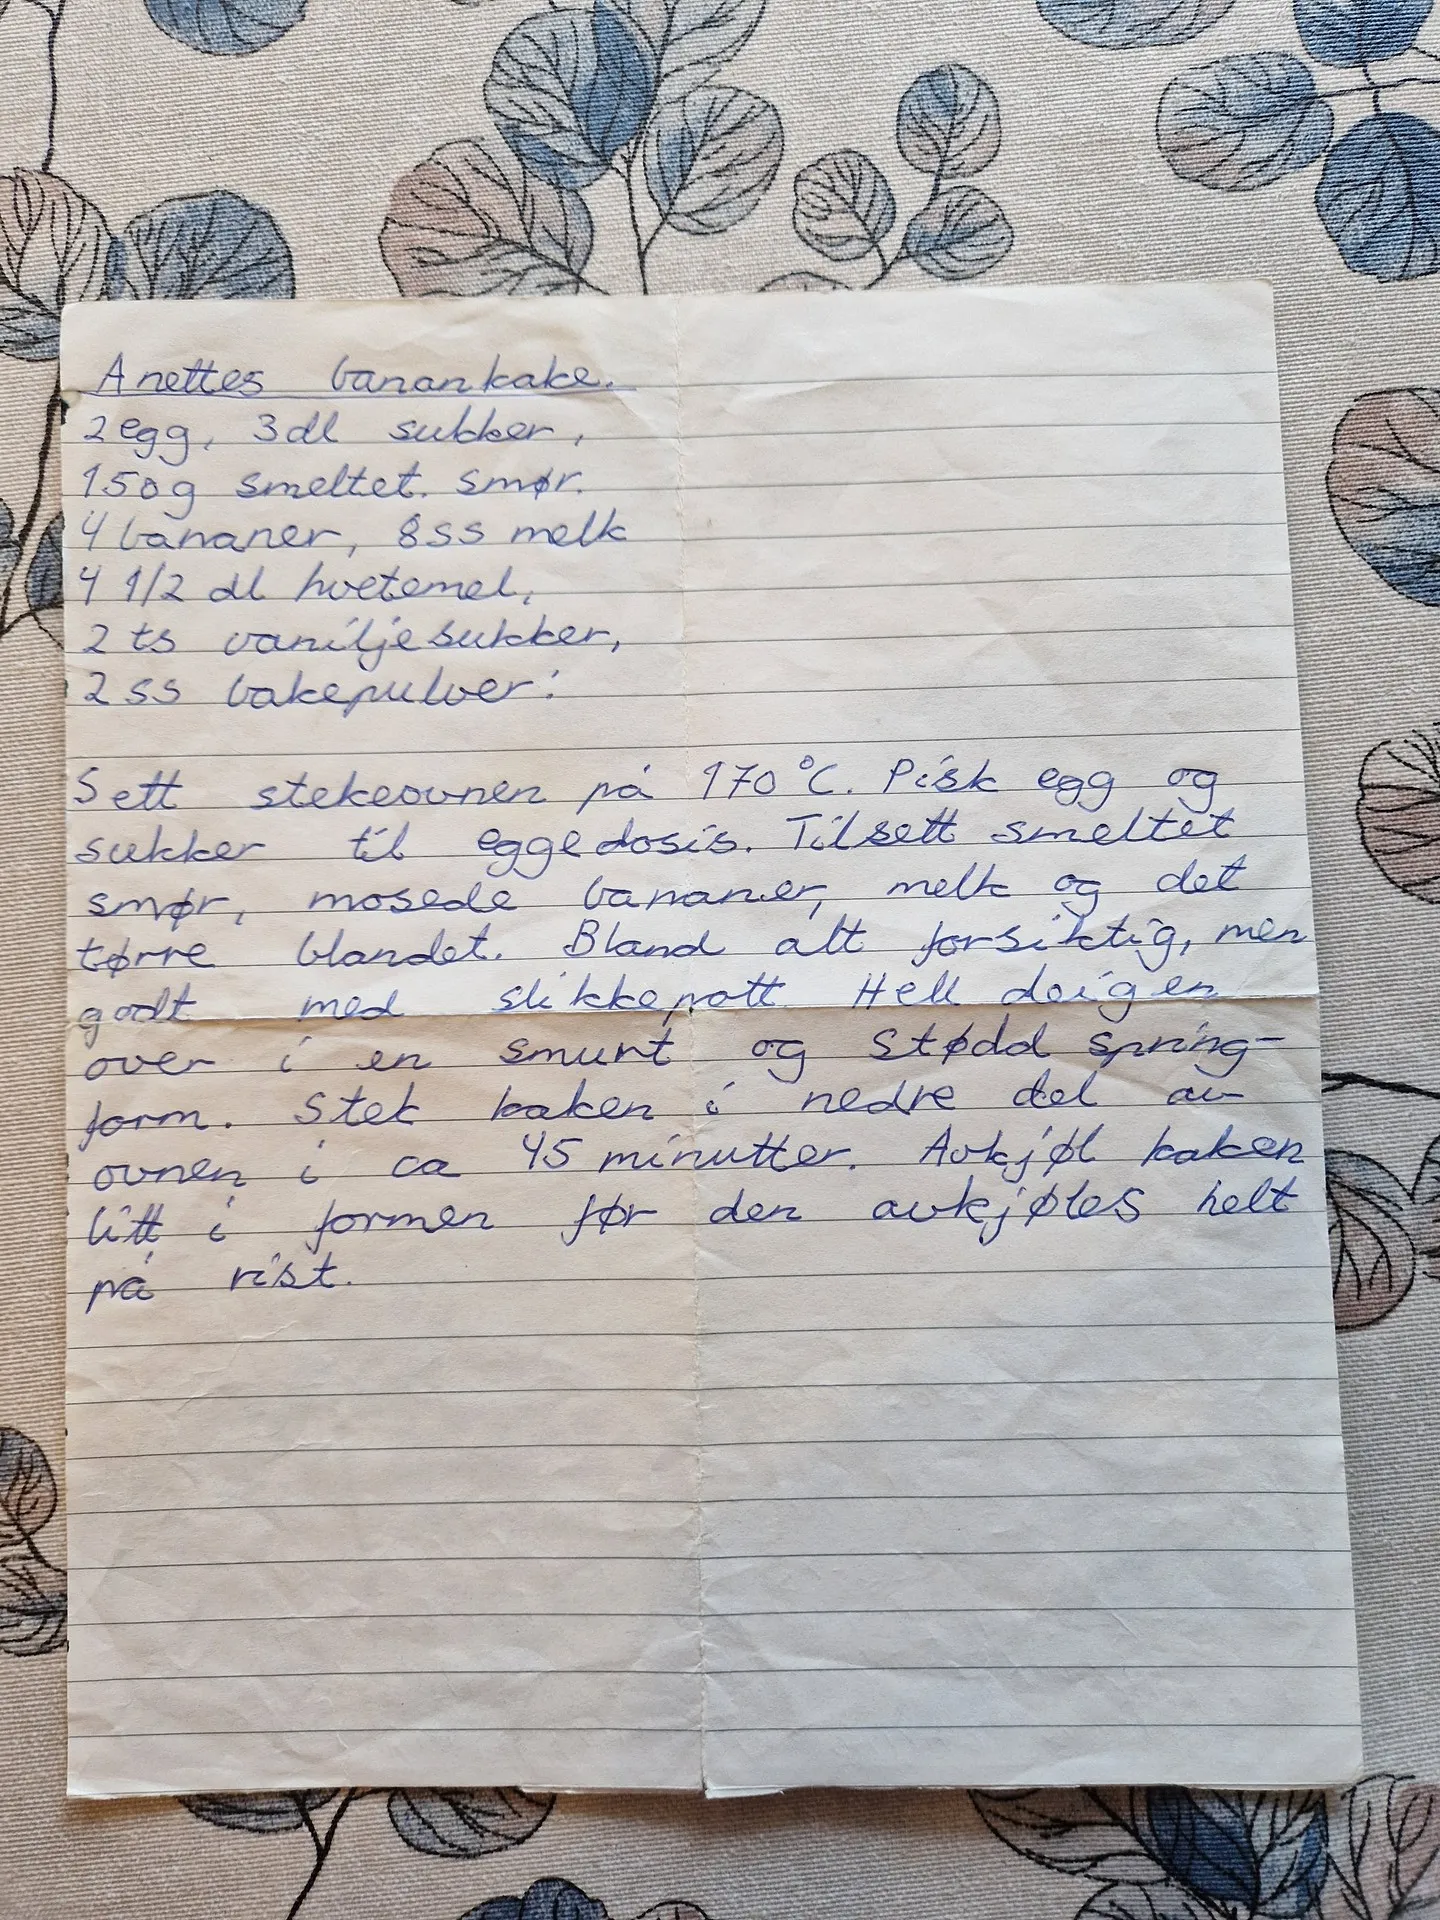 Anettes banankake.
2 egg, 3 dl sukker,
150g smeltet. smør.
4 bananer, 8 ss melk
4 1/2 dl hvetemel,
2 ts vaniljesukker,
2 ss bakepulver.
Sett stekeovnen på 170°C. Pisk egg og
sukker til eggedosis. Tilsett smeltet
smør, mosede bananer, melk og det
tørre blandet. Bland alt forsiktig, men
godt med slikkepott. Hell deigen
over i en smurt og stødd spring-
form. Stek kaken i nedre del av
ovnen i ca 45 minutter. Avkjøl kaken
litt i formen før den avkjøles helt
på rist.